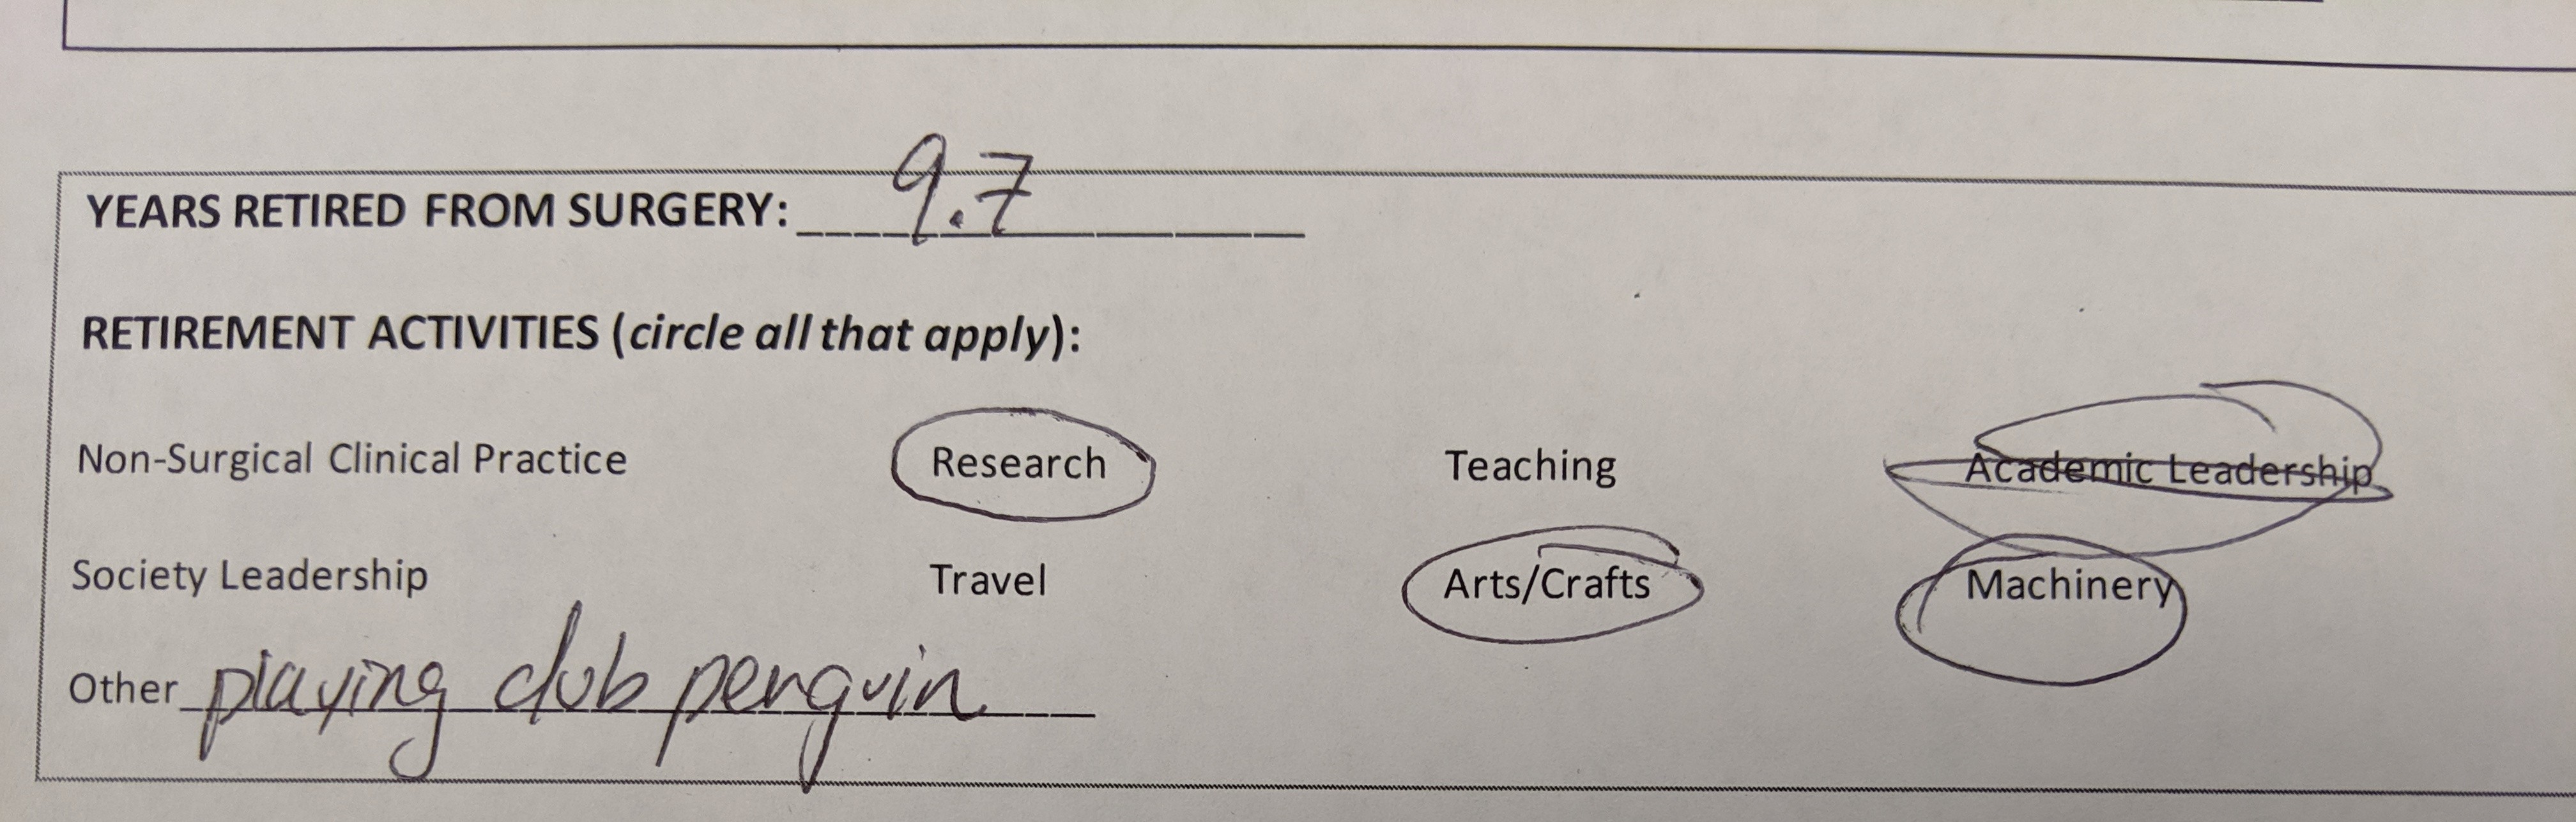 YEARS RETIRED FROM SURGERY: 9.7
RETIREMENT ACTIVITIES (circle all that apply):
Non-Surgical Clinical Practice Research Teaching Academic Leadership
Society Leadership Travel Arts/Crafts Machinery
Other playing club penguin